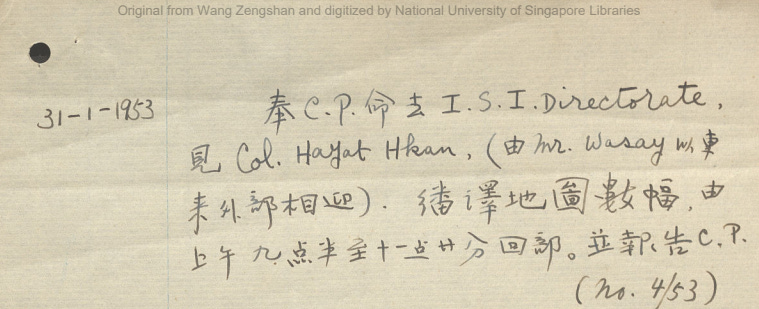 Original from Wang Zengshan and digitized by National University of Singapore Libraries
31-1-1953 奉C.P.命去I.S.I.Directorate,
見Col. Hayat Hkan, (由Mr. Wasay以車
来外部相迎). 繙譯地圖數幅, 由
上午九点半至十一点廿分回部。並報告C.P.
(no. 4/53)